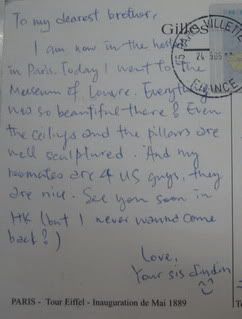 To my dearest brother,
Gilles
I am now in the
in Paris. Today I went to the
Museum of Louvre. Everything
was so beautiful there! Even
the ceilings and the pillars are
well sculptured. And my
roomates are 4 US guys, they
are nice. See you soon in
HK (but I never wanna come
back!)
Love,
Your sis
PARIS - Tour Eiffel - Inauguration de Mai 1889
VILLETTE